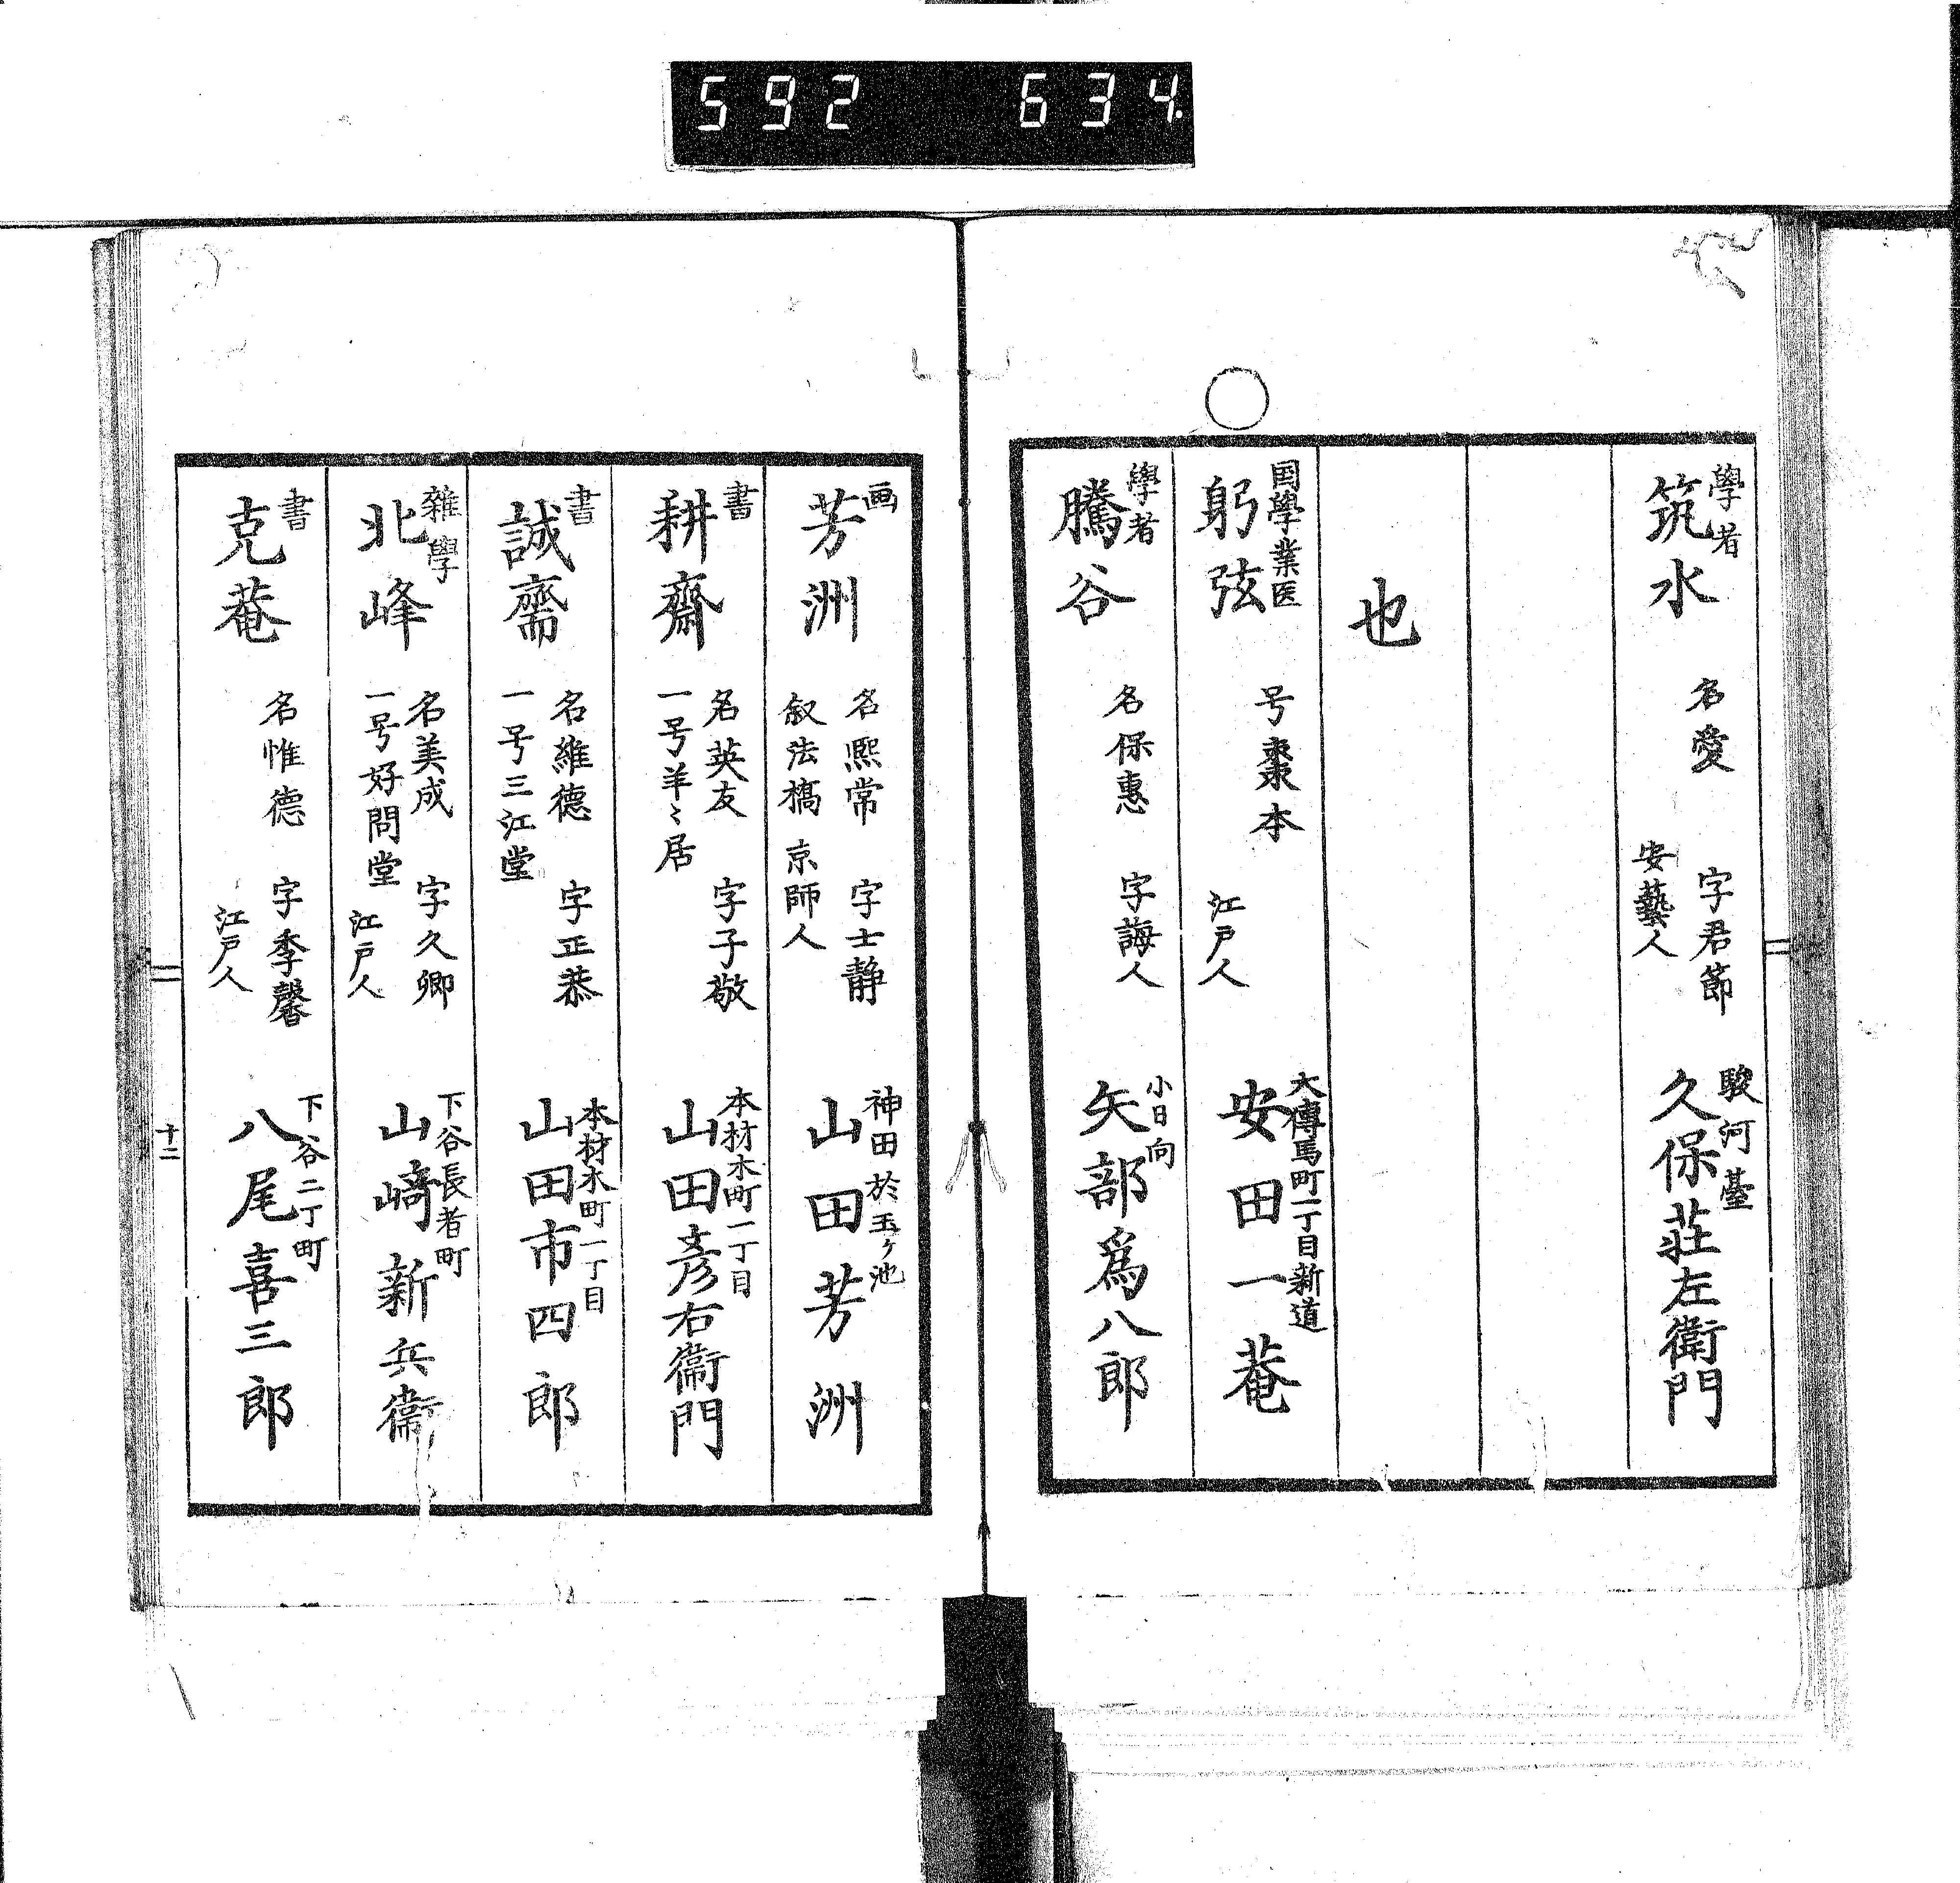 592 634.
學者
筑水
名愛 字君節
安藝人
駿河臺
久保莊左衛門
也
国學業医
躬弦
号棗本
江戸人
大傳馬町一丁目新道
安田一菴
學者
騰谷
名保惠 字誨人
小日向
矢部爲八郎
画
芳洲
名熙常 字士静
叙法橋 京師人
神田於玉ヶ池
山田芳洲
書
耕齋
名英友 字子敬
一号羊〻居
本材木町一丁目
山田彦右衞門
書
誠齋
名維德 字正恭
一号三江堂
本材木町一丁目
山田市四郎
雜學
北峰
名美成 字久卿
一号好問堂 江戸人
下谷長者町
山﨑新兵衞
書
克菴
名惟德 字季馨
江戸人
下谷二丁町
八尾喜三郎
十二